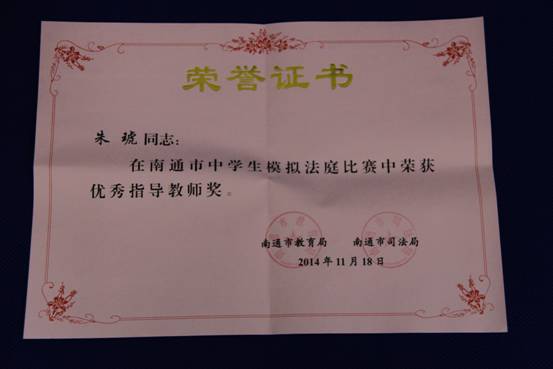 荣誉证书
朱琥 同志：
在南通市中学生模拟法庭比赛中荣获
优秀指导教师奖。
南通市教育局 南通市司法局
2014年11月18日